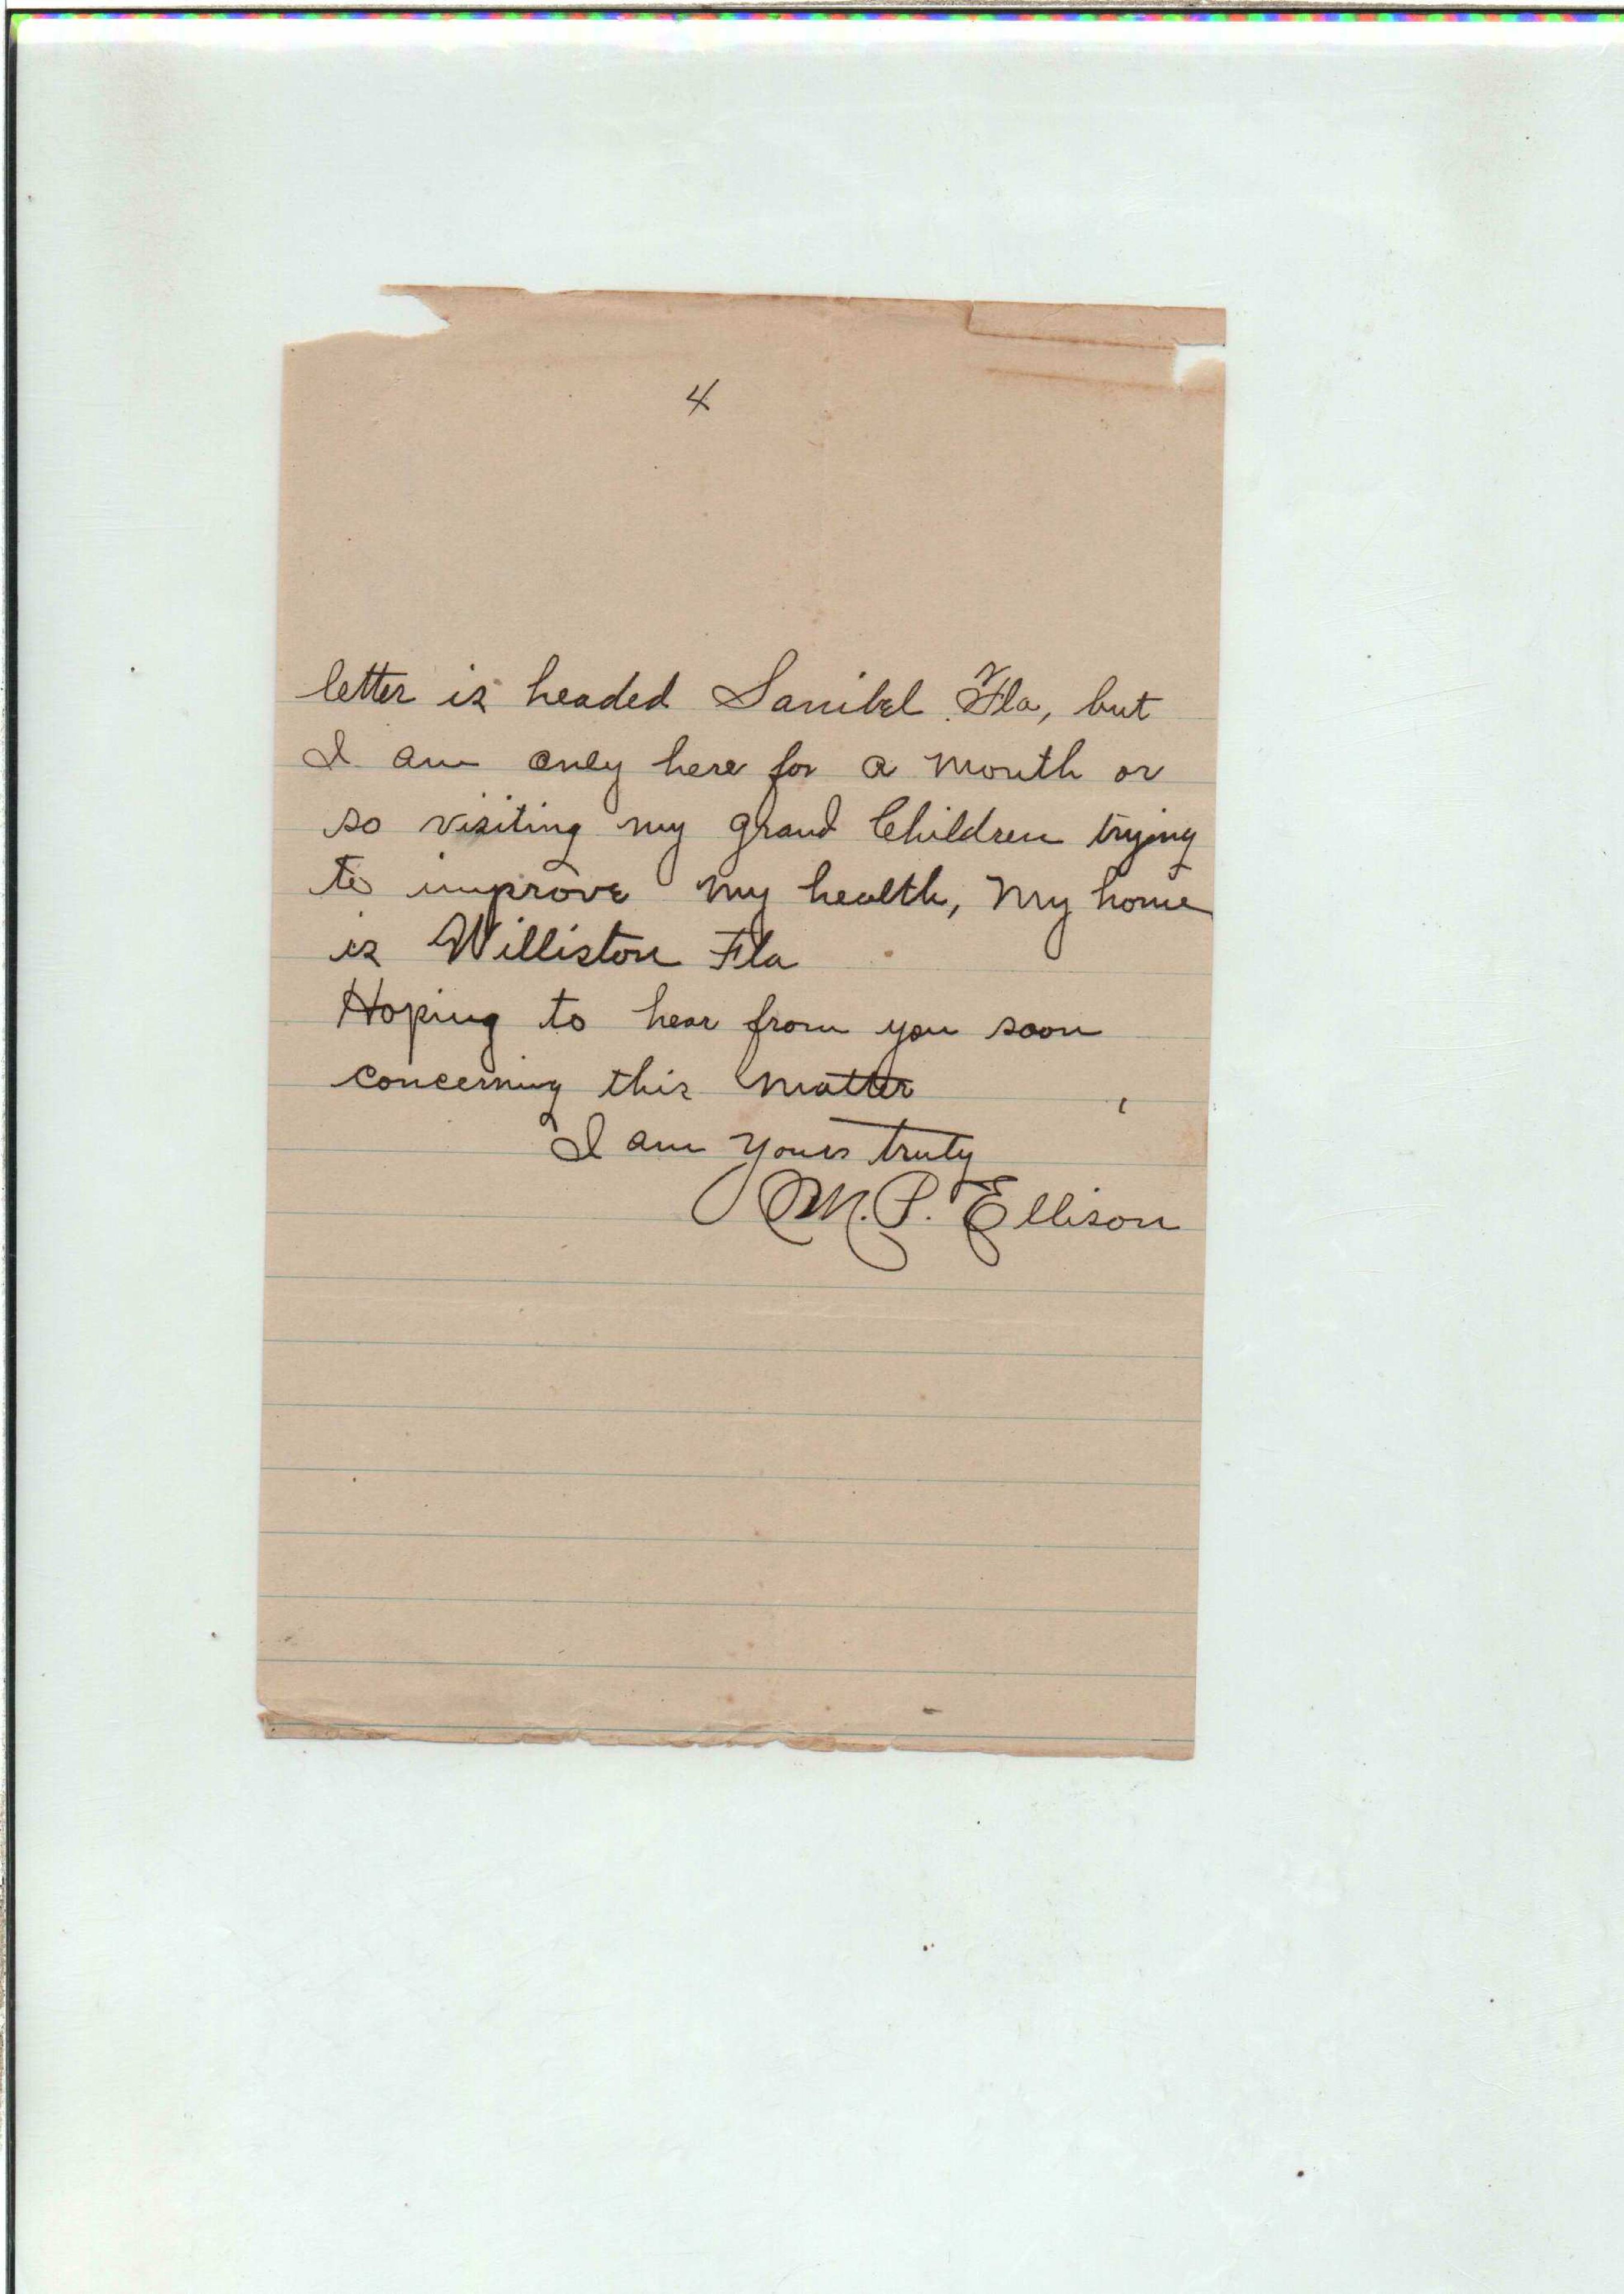 4
letter is headed Sanibel Fla, but
I am only here for a month or
so visiting my grand Children trying
to improve my health, My home
is Williston Fla
Hoping to hear from you soon
concerning this matter
I am yours truly
M. P. Ellison